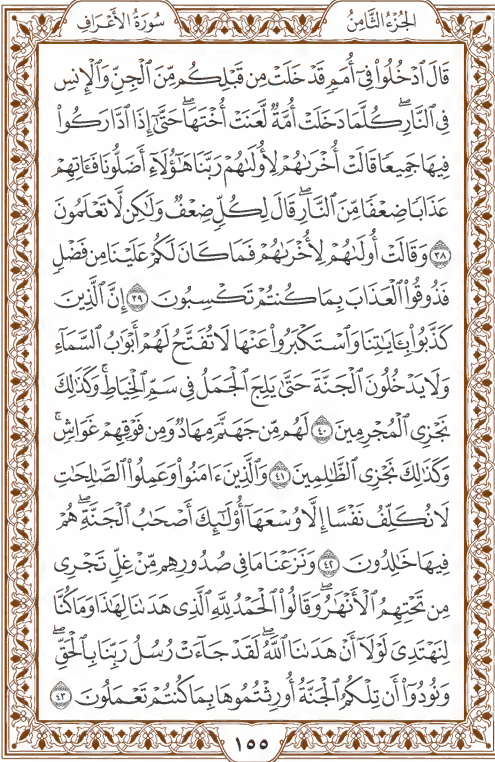 سُورَةُ الأَعْرَافِ
الجُزْءُ الثَّامِنُ
قَالَ ٱدْخُلُوا۟ فِىٓ أُمَمٍ قَدْ خَلَتْ مِن قَبْلِكُم مِّنَ ٱلْجِنِّ وَٱلْإِنسِ
فِى ٱلنَّارِۖ كُلَّمَا دَخَلَتْ أُمَّةٌ لَّعَنَتْ أُخْتَهَاۖ حَتَّىٰٓ إِذَا ٱدَّارَكُوا۟
فِيهَا جَمِيعًا قَالَتْ أُخْرَىٰهُمْ لِأُولَىٰهُمْ رَبَّنَا هَٰٓؤُلَآءِ أَضَلُّونَا فَـَٔاتِهِمْ
عَذَابًا ضِعْفًا مِّنَ ٱلنَّارِۖ قَالَ لِكُلٍّ ضِعْفٌ وَلَٰكِن لَّا تَعْلَمُونَ
٣٨ وَقَالَتْ أُولَىٰهُمْ لِأُخْرَىٰهُمْ فَمَا كَانَ لَكُمْ عَلَيْنَا مِن فَضْلٍ
فَذُوقُوا۟ ٱلْعَذَابَ بِمَا كُنتُمْ تَكْسِبُونَ ٣٩ إِنَّ ٱلَّذِينَ
كَذَّبُوا۟ بِـَٔايَٰتِنَا وَٱسْتَكْبَرُوا۟ عَنْهَا لَا تُفَتَّحُ لَهُمْ أَبْوَٰبُ ٱلسَّمَآءِ
وَلَا يَدْخُلُونَ ٱلْجَنَّةَ حَتَّىٰ يَلِجَ ٱلْجَمَلُ فِى سَمِّ ٱلْخِيَاطِۚ وَكَذَٰلِكَ
نَجْزِى ٱلْمُجْرِمِينَ ٤٠ لَهُم مِّن جَهَنَّمَ مِهَادٌ وَمِن فَوْقِهِمْ غَوَاشٍۚ
وَكَذَٰلِكَ نَجْزِى ٱلظَّٰلِمِينَ ٤١ وَٱلَّذِينَ ءَامَنُوا۟ وَعَمِلُوا۟ ٱلصَّٰلِحَٰتِ
لَا نُكَلِّفُ نَفْسًا إِلَّا وُسْعَهَآ أُو۟لَٰٓئِكَ أَصْحَٰبُ ٱلْجَنَّةِۖ هُمْ
فِيهَا خَٰلِدُونَ ٤٢ وَنَزَعْنَا مَا فِى صُدُورِهِم مِّنْ غِلٍّ تَجْرِى
مِن تَحْتِهِمُ ٱلْأَنْهَٰرُۖ وَقَالُوا۟ ٱلْحَمْدُ لِلَّهِ ٱلَّذِى هَدَىٰنَا لِهَٰذَا وَمَا كُنَّا
لِنَهْتَدِىَ لَوْلَآ أَنْ هَدَىٰنَا ٱللَّهُۖ لَقَدْ جَآءَتْ رُسُلُ رَبِّنَا بِٱلْحَقِّۖ
وَنُودُوٓا۟ أَن تِلْكُمُ ٱلْجَنَّةُ أُورِثْتُمُوهَا بِمَا كُنتُمْ تَعْمَلُونَ ٤٣
١٥٥